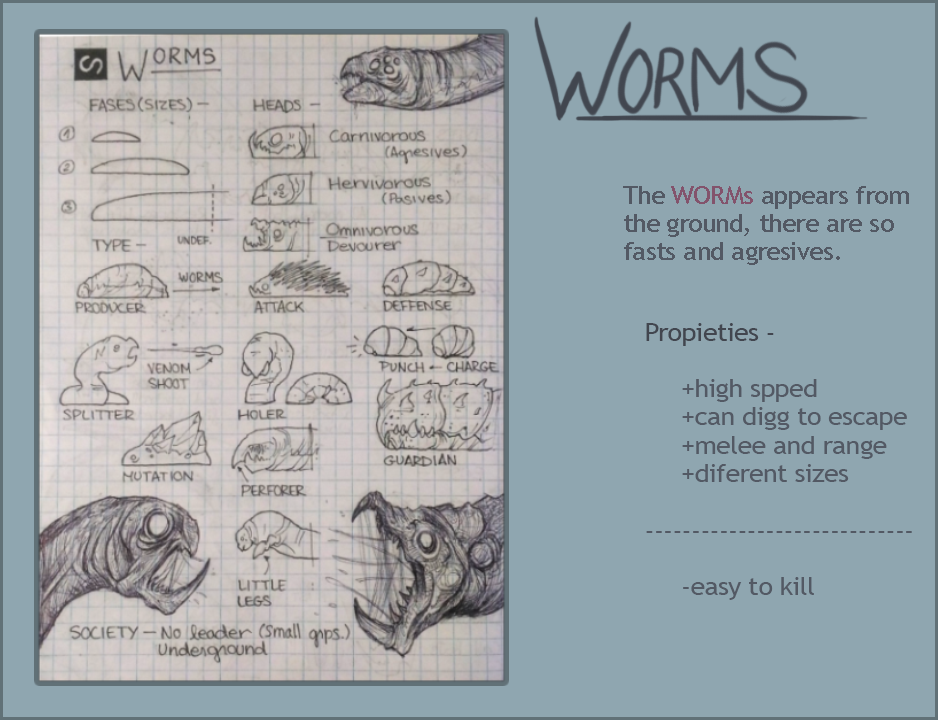 WORMS
FASES (SIZES) -
1
2
3
UNDEF.
HEADS -
Carnivorous
(Agresives)
Hervivorous
(Pasives)
Omnivorous
Devourer
TYPE -
PRODUCER
WORMS
ATTACK
DEFFENSE
SPLITTER
VENOM
SHOOT
HOLER
PUNCH ← CHARGE
MUTATION
PERFORER
GUARDIAN
LITTLE
LEGS
SOCIETY - No leader (Small grps.)
Underground
WORMS
The WORMs appears from
the ground, there are so
fasts and agresives.
Propieties -
+high spped
+can digg to escape
+melee and range
+diferent sizes
-----------------------------
-easy to kill